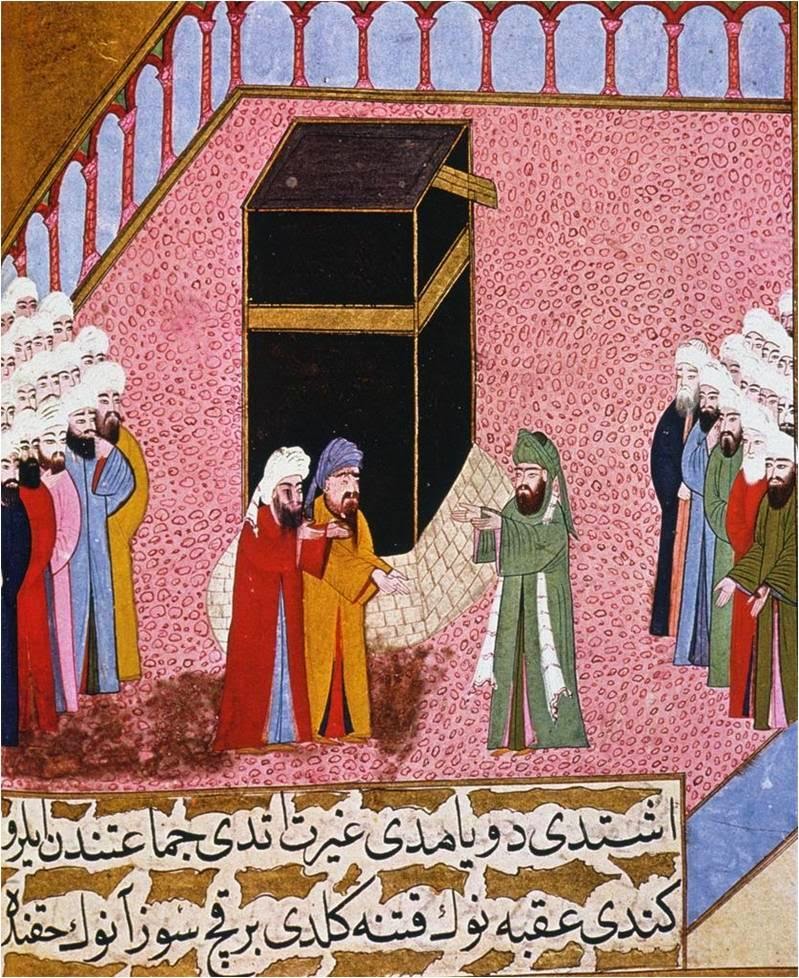 اشتدى دويامدى غيرت اتدى جماعتندن ايلرو
كندى عقبه نوك قتنه كلدى برقچ سوز آنوك حقنده